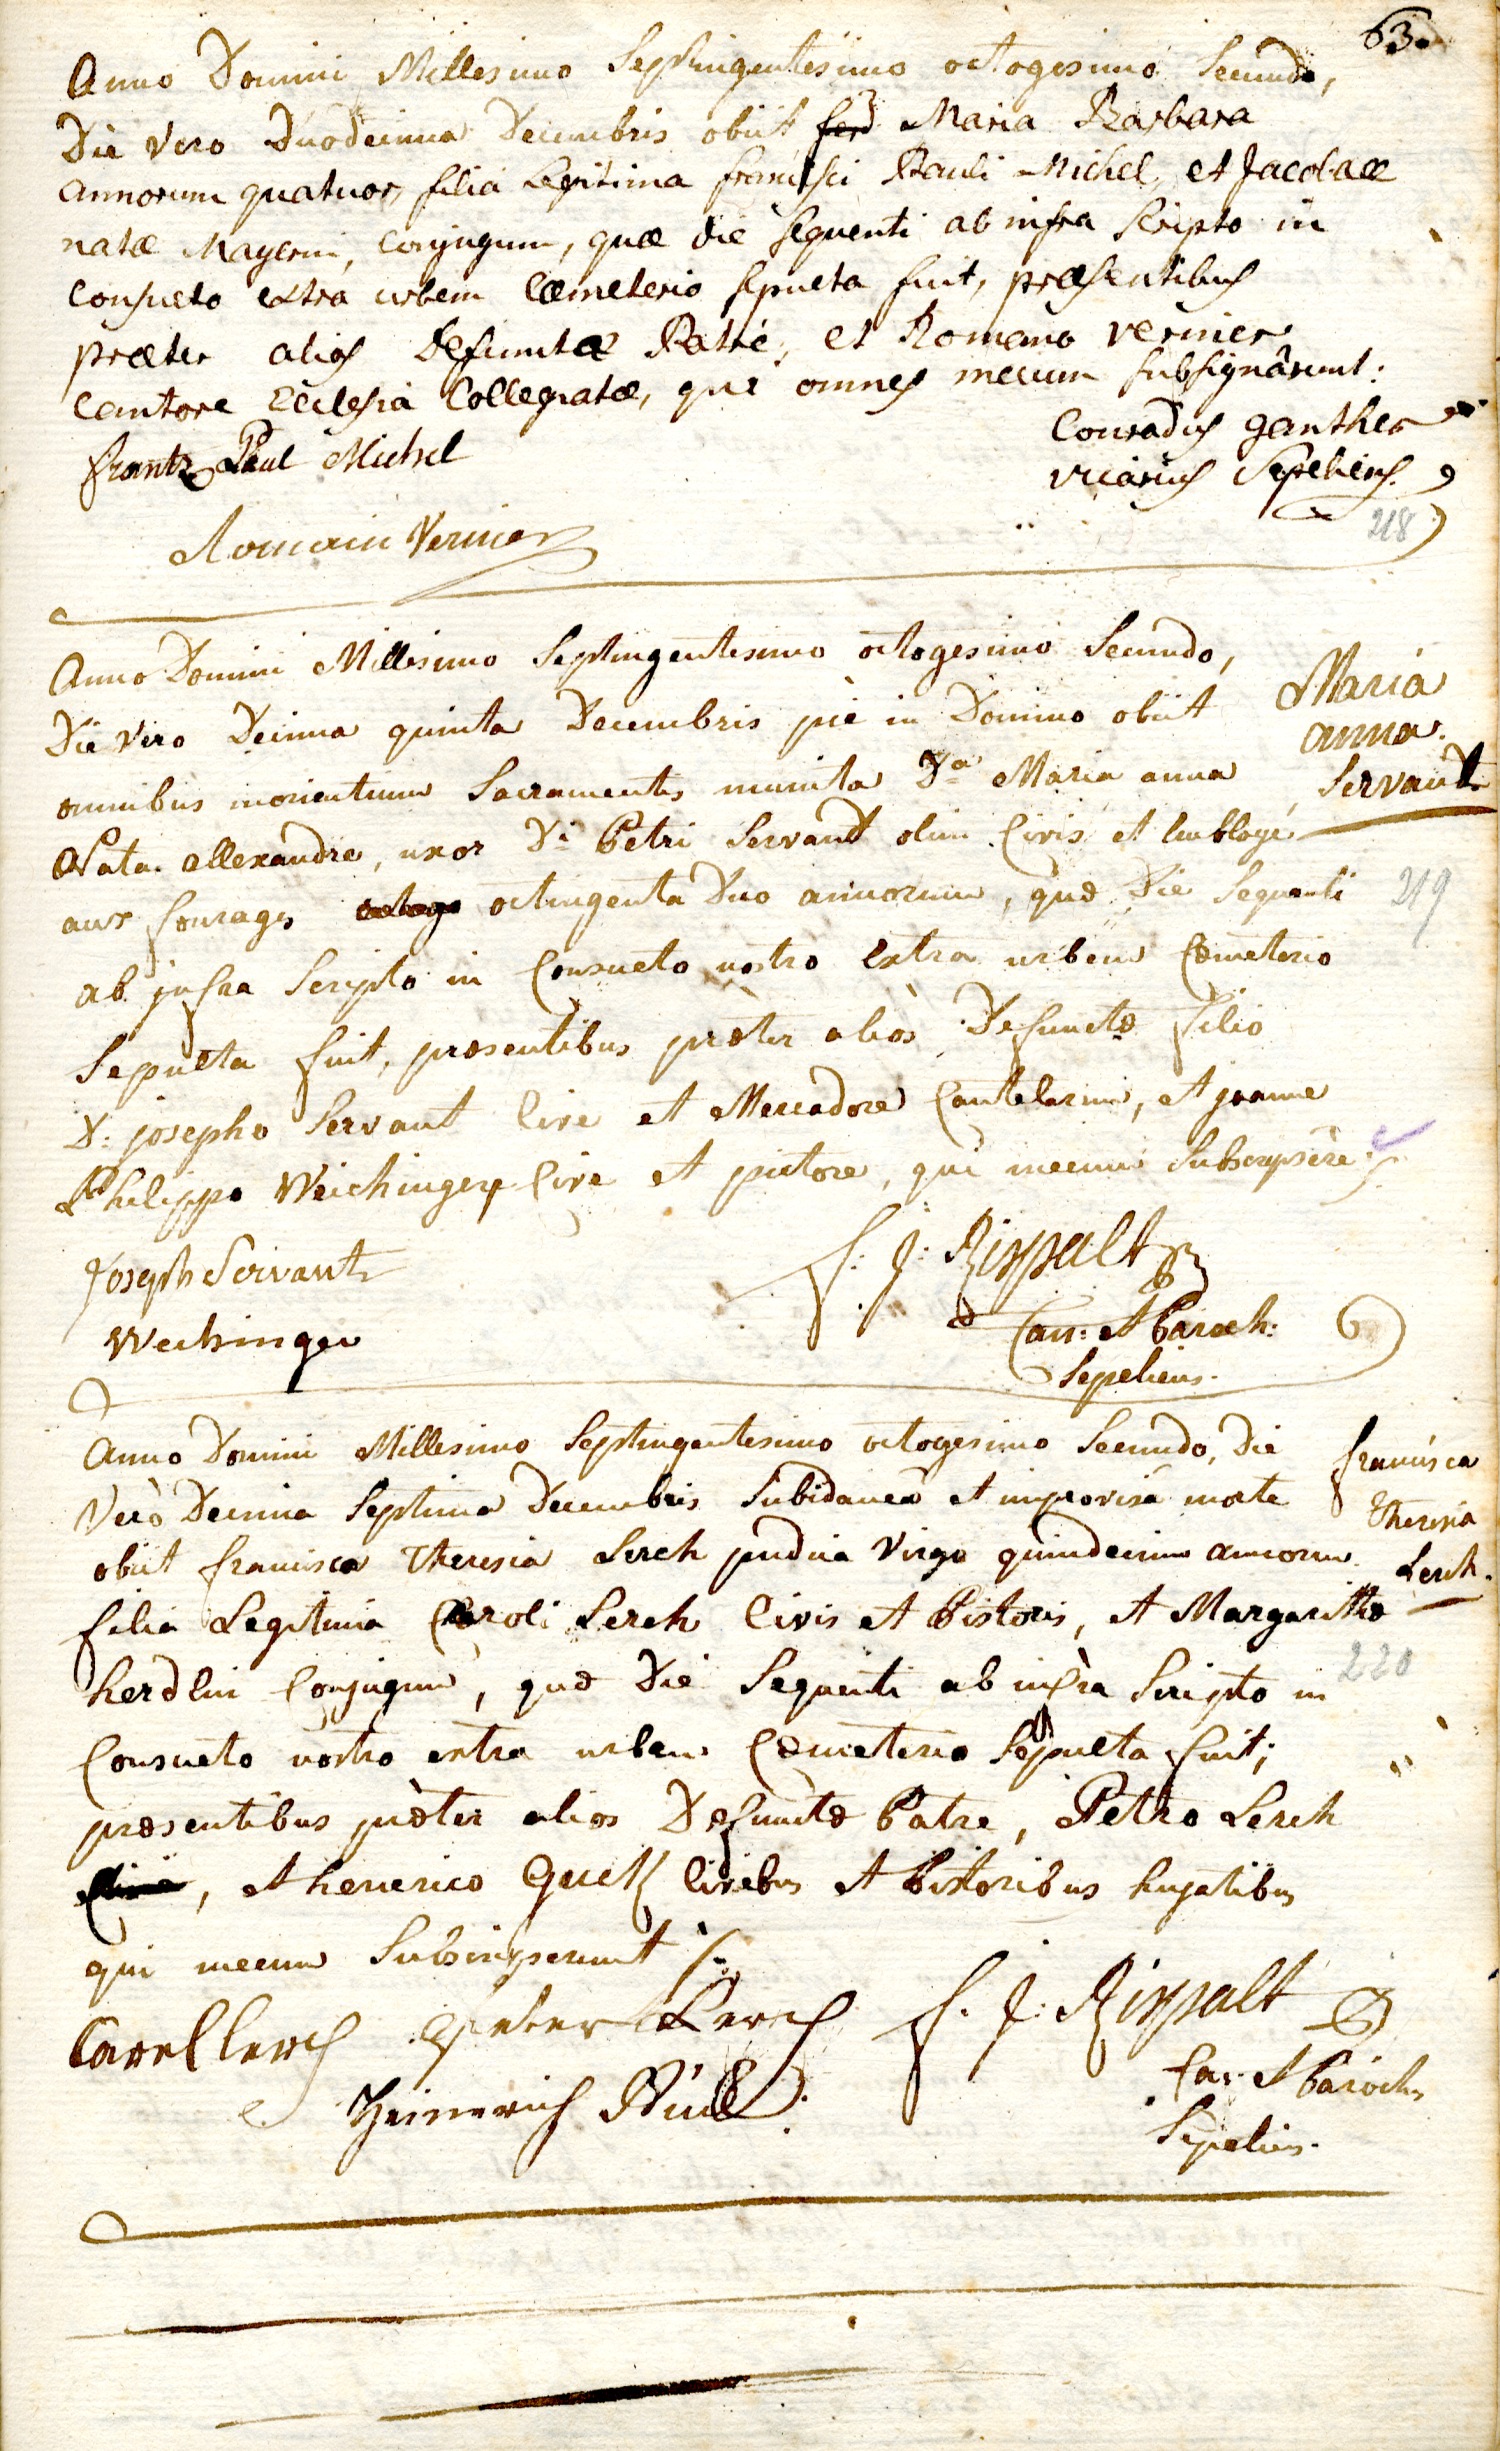 63.
Anno Domini Millesimo Septingentesimo octogesimo Secundo,
Die Vero Duodecima Decembris obiit Maria Barbara
annorum quatuor, filia legitima francisci Pauli Michel, et Jacobaæ
natæ Mayerin, conjugum, quæ die sequenti ab infra scripto in
consueto extra urbem Cœmeterio sepulta fuit, præsentibus
præter alios Defunctæ Patre, et Romano Vernier
Cantore Ecclesiæ Collegiatæ, qui omnes mecum subsignârunt:
frantz Paul Michel
Conradus ganther
vicarius Sepeliens.
Romain Vernier
218
Anno Domini Millesimo Septingentesimo octogesimo Secundo,
Die Vero Decima quinta Decembris piè in Domino obiit
omnibus morientium Sacramentis munita Da Maria anna
Nata allexandre, uxor Di Petri Servant olim Civis et
aux fourages octingenta Duo annorum, quæ Die Sequenti
ab infra Scripto in Consueto nostro extra urbem Cœmeterio
Sepulta fuit, præsentibus præter alios Defunctæ filio
D: josepho Servant Cive et Mercadore, et joanne
Philippo Weichinger Cive et pictore, qui mecum Subscripsêre
Maria
anna
Servant
219
Joseph Servant
Wechinger
f: J: Rippalt
Can: et Paroch:
Sepeliens.
Anno Domini Millesimo Septingentesimo octogesimo Secundo, Die
Verò Decima Septima Decembris Subidaneâ et improvisâ morte
obiit francisca Theresia Lerch pudica Virgo quindecim annorum
filia Legitima Caroli Lerch Civis et Pistoris, et Margarithæ
herdlin Conjugum, quæ Die Sequenti ab infra Scripto in
Consueto nostro extra urbem Cœmeterio Sepulta fuit;
præsentibus præter alios Defunctæ Patre, Petro Lerch
, et henerico civibus et Pistoribus hujatibus
qui mecum Subscripserunt
francisca
Theresia
Lerch.
220
Carel lerch
Peter Lerch
f. J: Rippalt
Heinerich
Can: et Paroch:
Sepeliens.